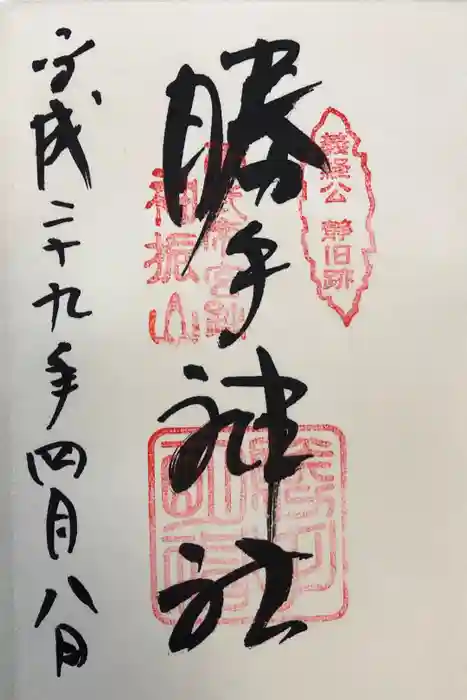 義経公 静旧跡
勝手神社
袖振山
平成二十九年四月八日